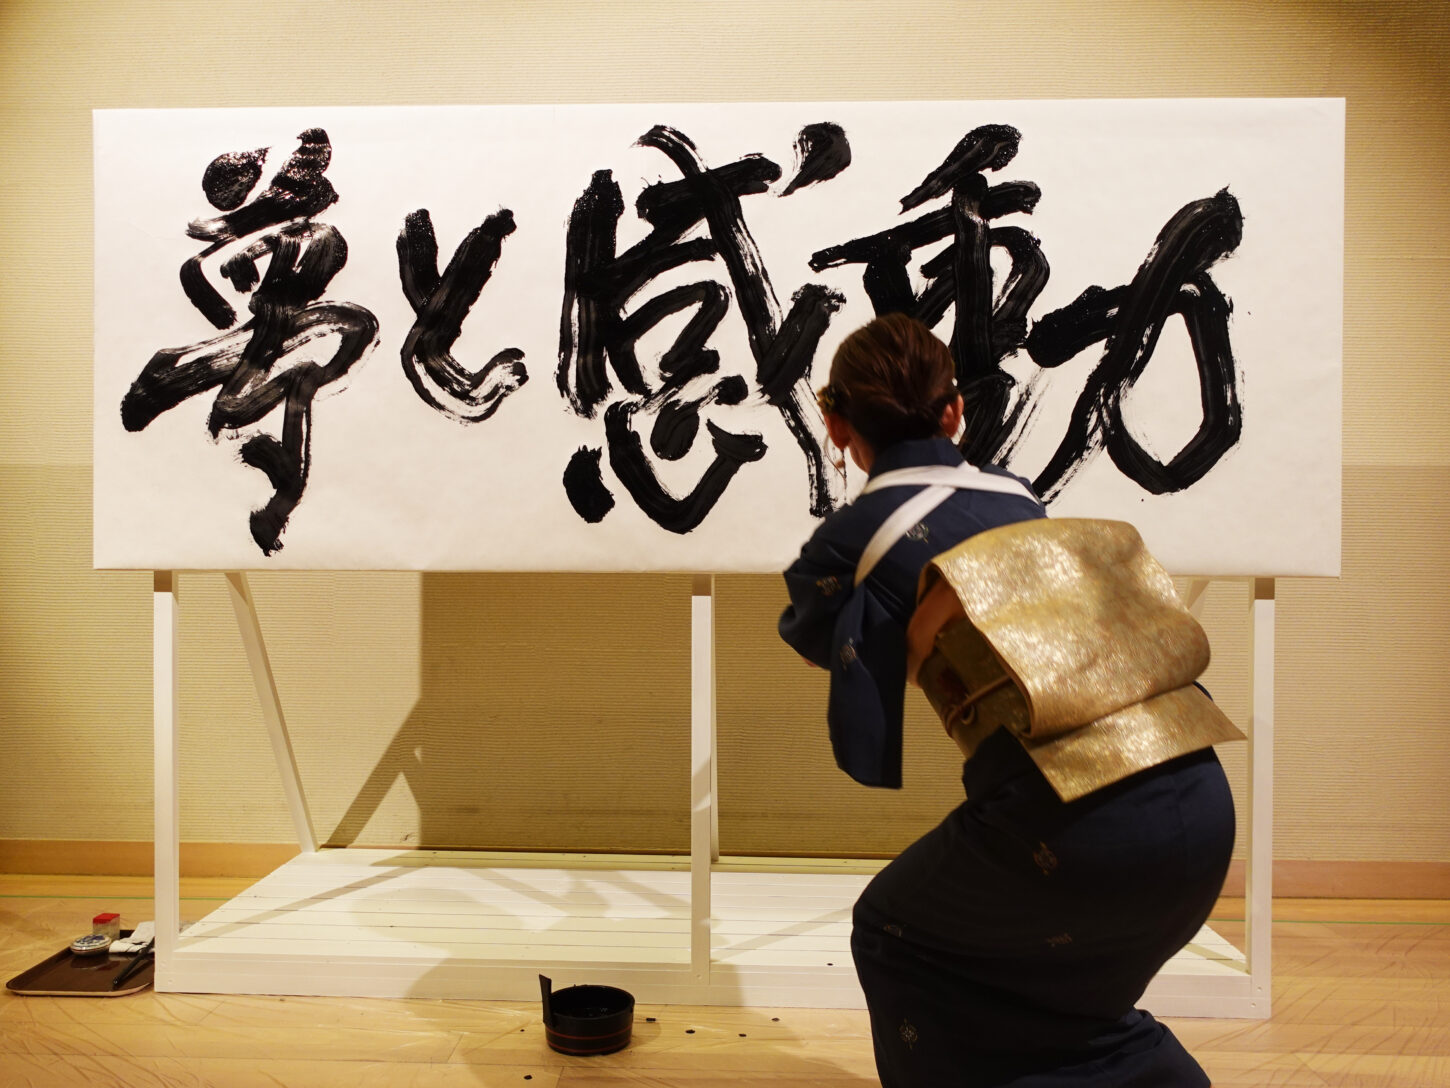 夢と感動